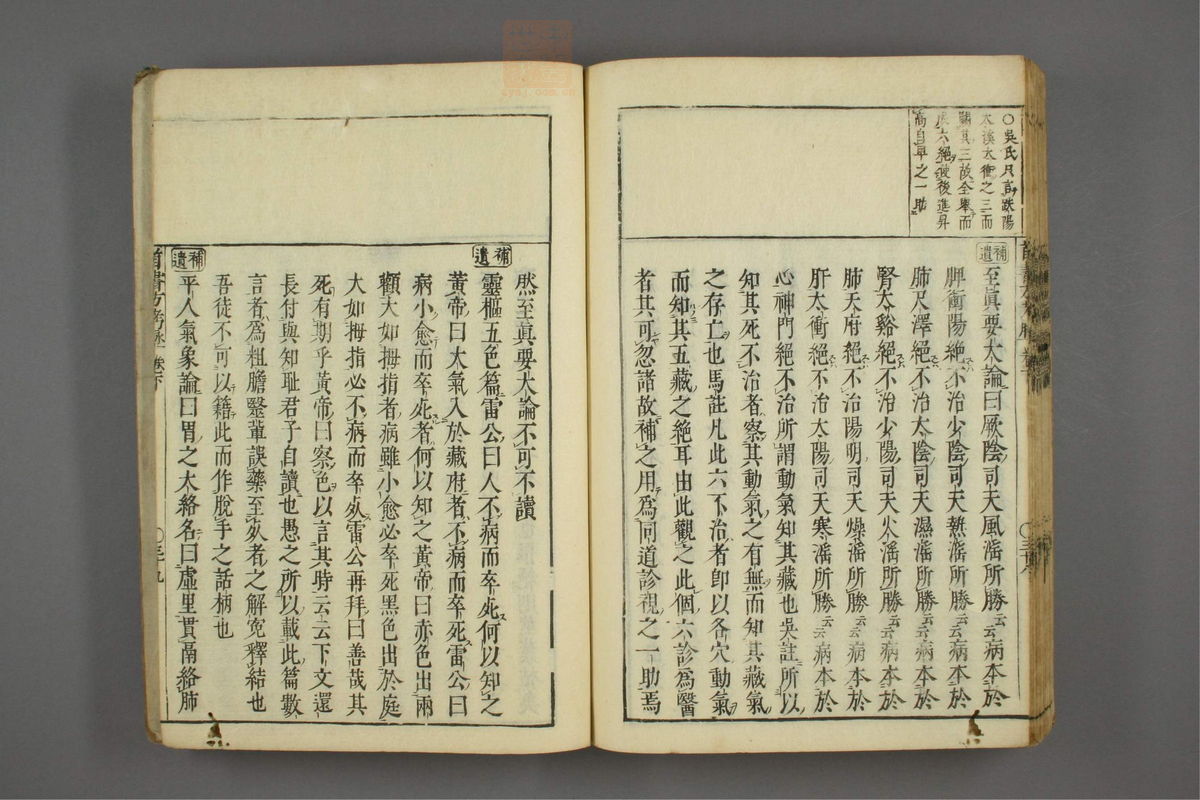 ○吳氏只言趺陽
太溪太衝之三而
闕其三故全舉而
後進昇
高自卑之一助
補遺
至眞要大論曰厥陰司天風淫所勝云云病本於
脾衝陽絕不治少陰司天熱淫所勝云云病本於
肺尺澤絕不治太陰司天濕淫所勝云云病本於
腎太谿絕不治少陽司天火淫所勝云云病本於
肺天府絕不治陽明司天燥淫所勝云云病本於
肝太衝絕不治太陽司天寒淫所勝云云病本於
心神門絕不治所謂動氣知其藏也吳註所以
知其死不治者察其動氣之有無而知其藏氣
之存亡也馬註凡此六不治者即以各穴動氣
而知其五藏之絕耳由此觀之此個六診爲醫
者其可忽諸故補之用爲同道診視之一助焉
然至眞要大論不可不讀
補遺
靈樞五色篇雷公曰人不病而卒死何以知之
黃帝曰大氣入於藏府者不病而卒死雷公曰
病小愈而卒死者何以知之黃帝曰赤色出兩
顴大如拇指者病雖小愈必卒死黑色出於庭
大如拇指必不病而卒死雷公再拜曰善哉其
死有期乎黃帝曰察色以言其時云云下文還
長付與知耻君子自讀也愚之所以載此篇數
言者爲粗膽醫輩誤藥至死者之解寃釋結也
吾徒不可以籍此而作脫手之話柄也
補遺
平人氣象論曰胃之大絡名曰虛里貫鬲絡肺